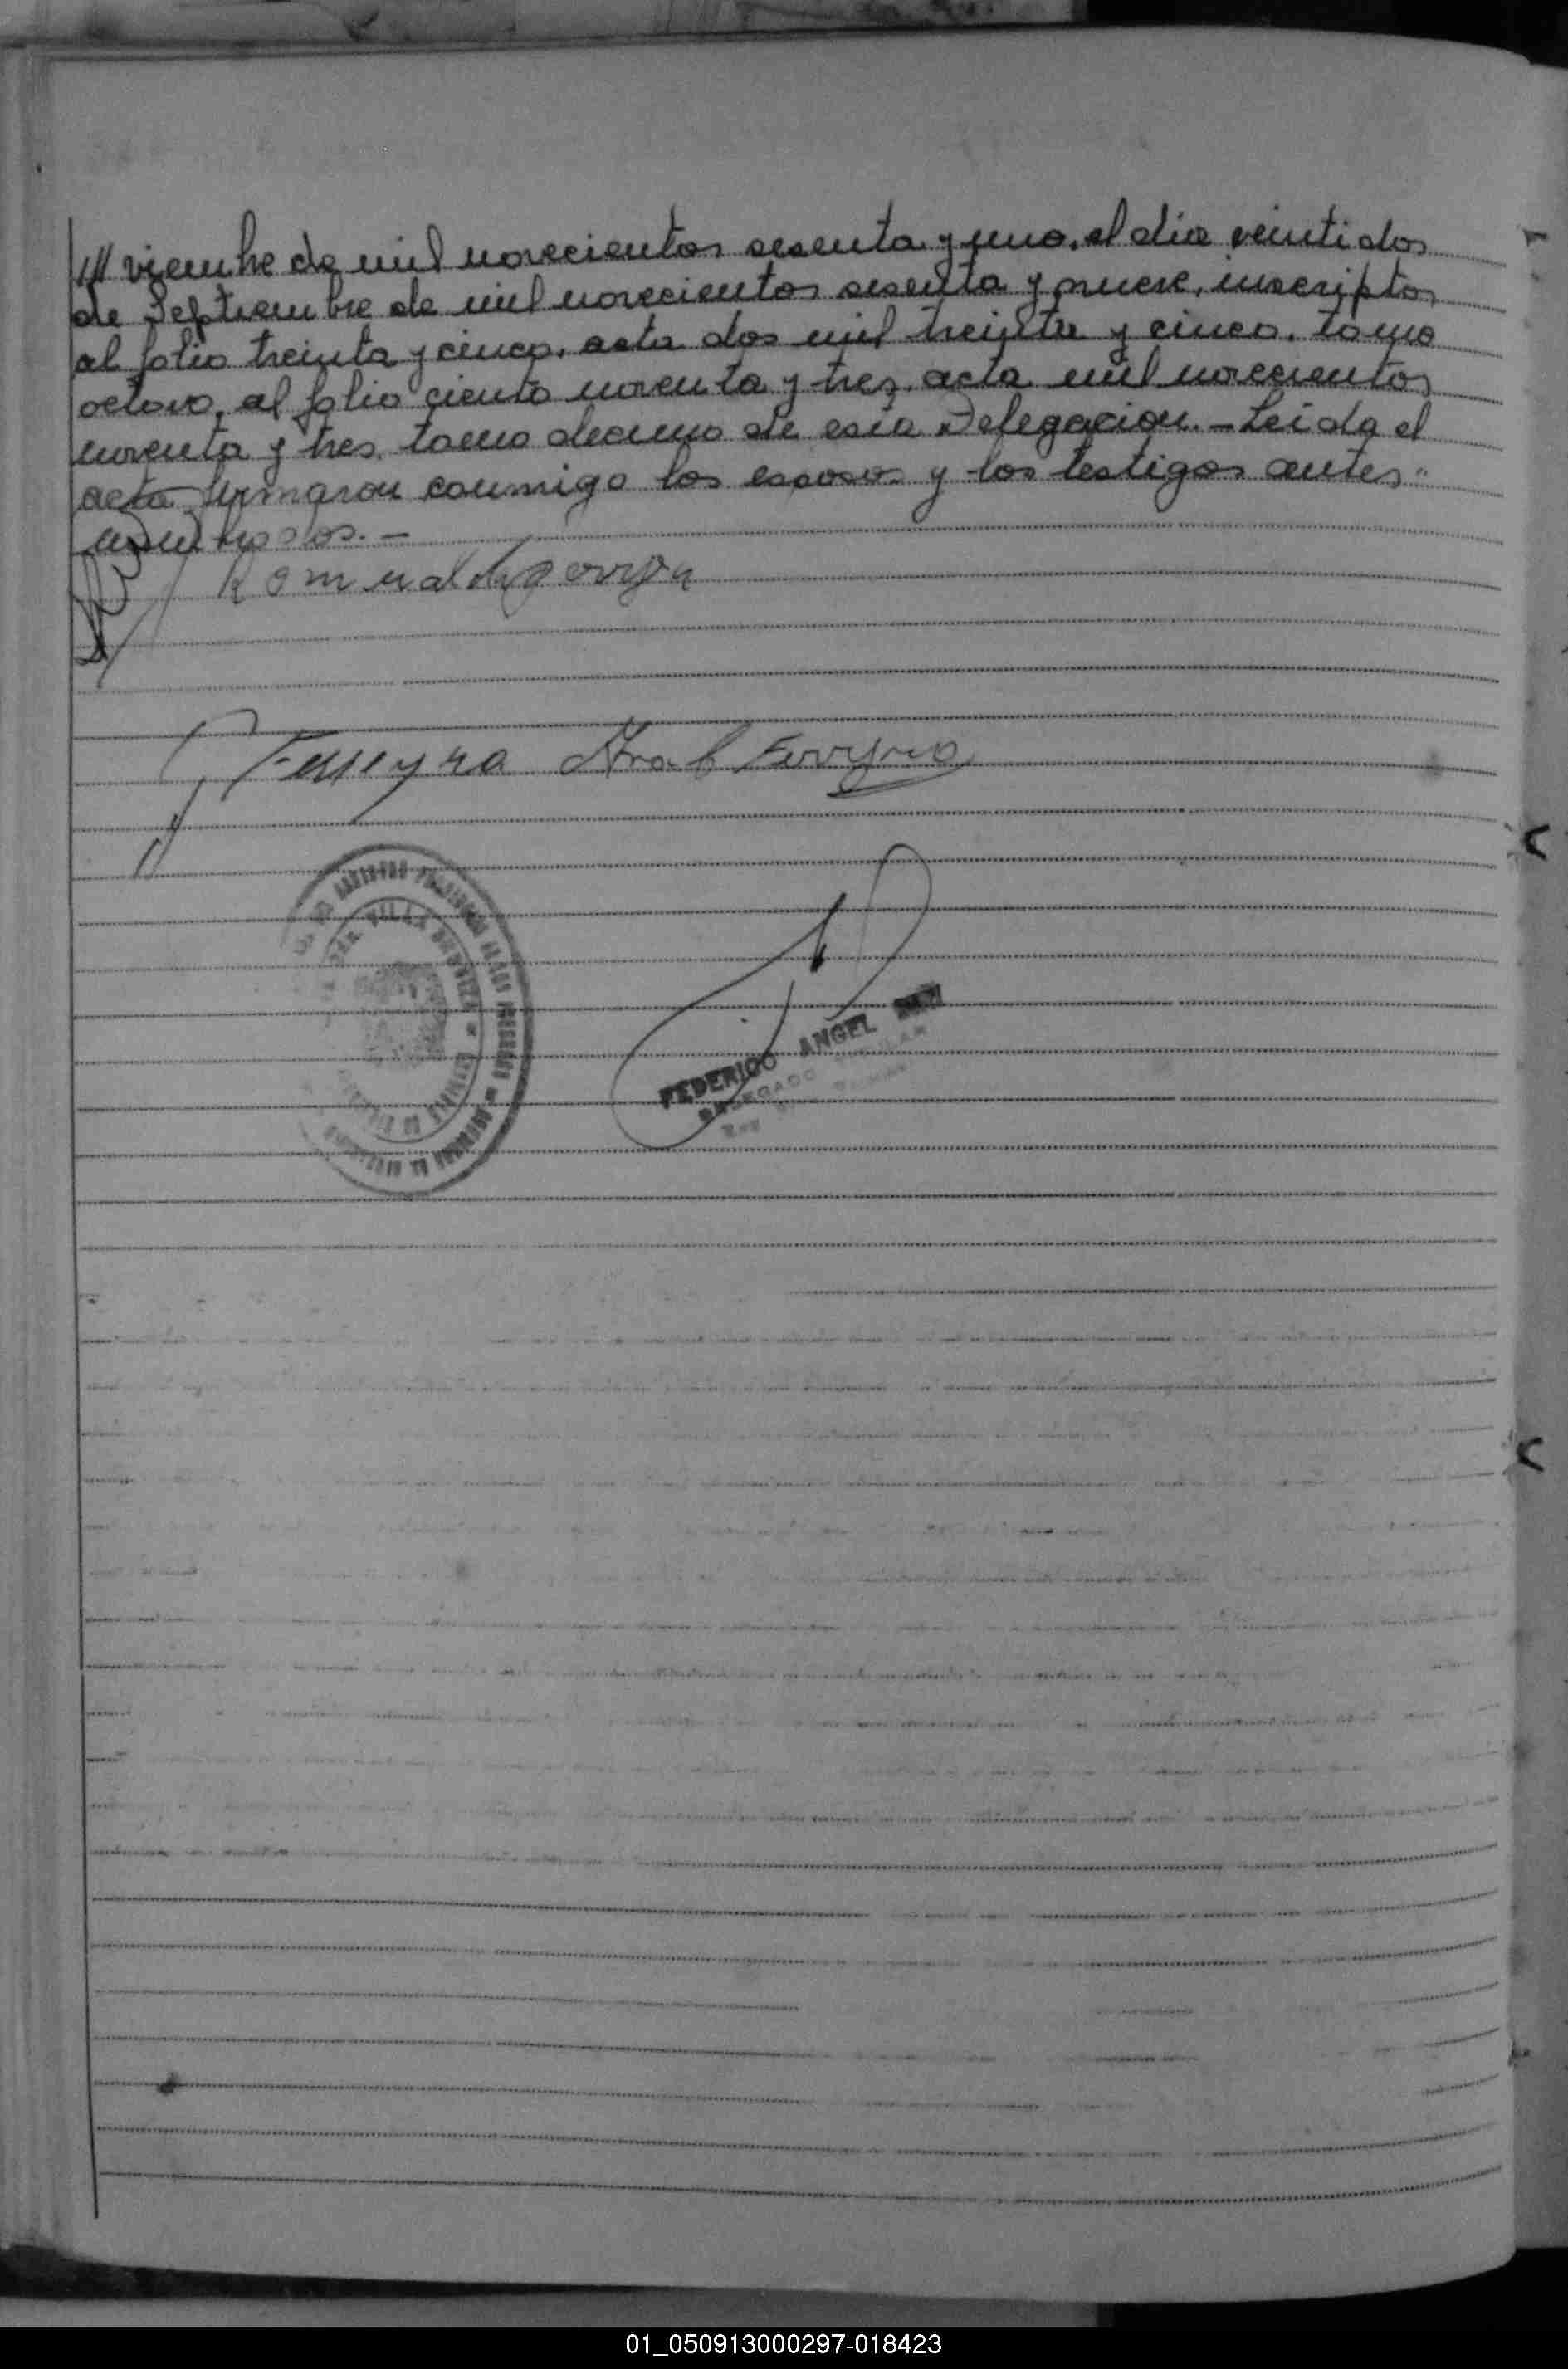 /// viembre de mil novecientos sesenta y uno, el dia veintidos
de Septiembre de mil novecientos sesenta y nueve, inscriptos
al folio treinta y cinco, acta dos mil treinta y cinco, tomo
octavo, al folio ciento noventa y tres, acta mil novecientos
noventa y tres, tomo decimo de esta Delegacion.- Leida el
acta firmaron conmigo los esposos y los testigos antes
nombrados.-
Romualdo
Ferreyra Ferreyra
VILLA
FEDERICO ANGEL
DELEGADO TITULAR
01_050913000297-018423